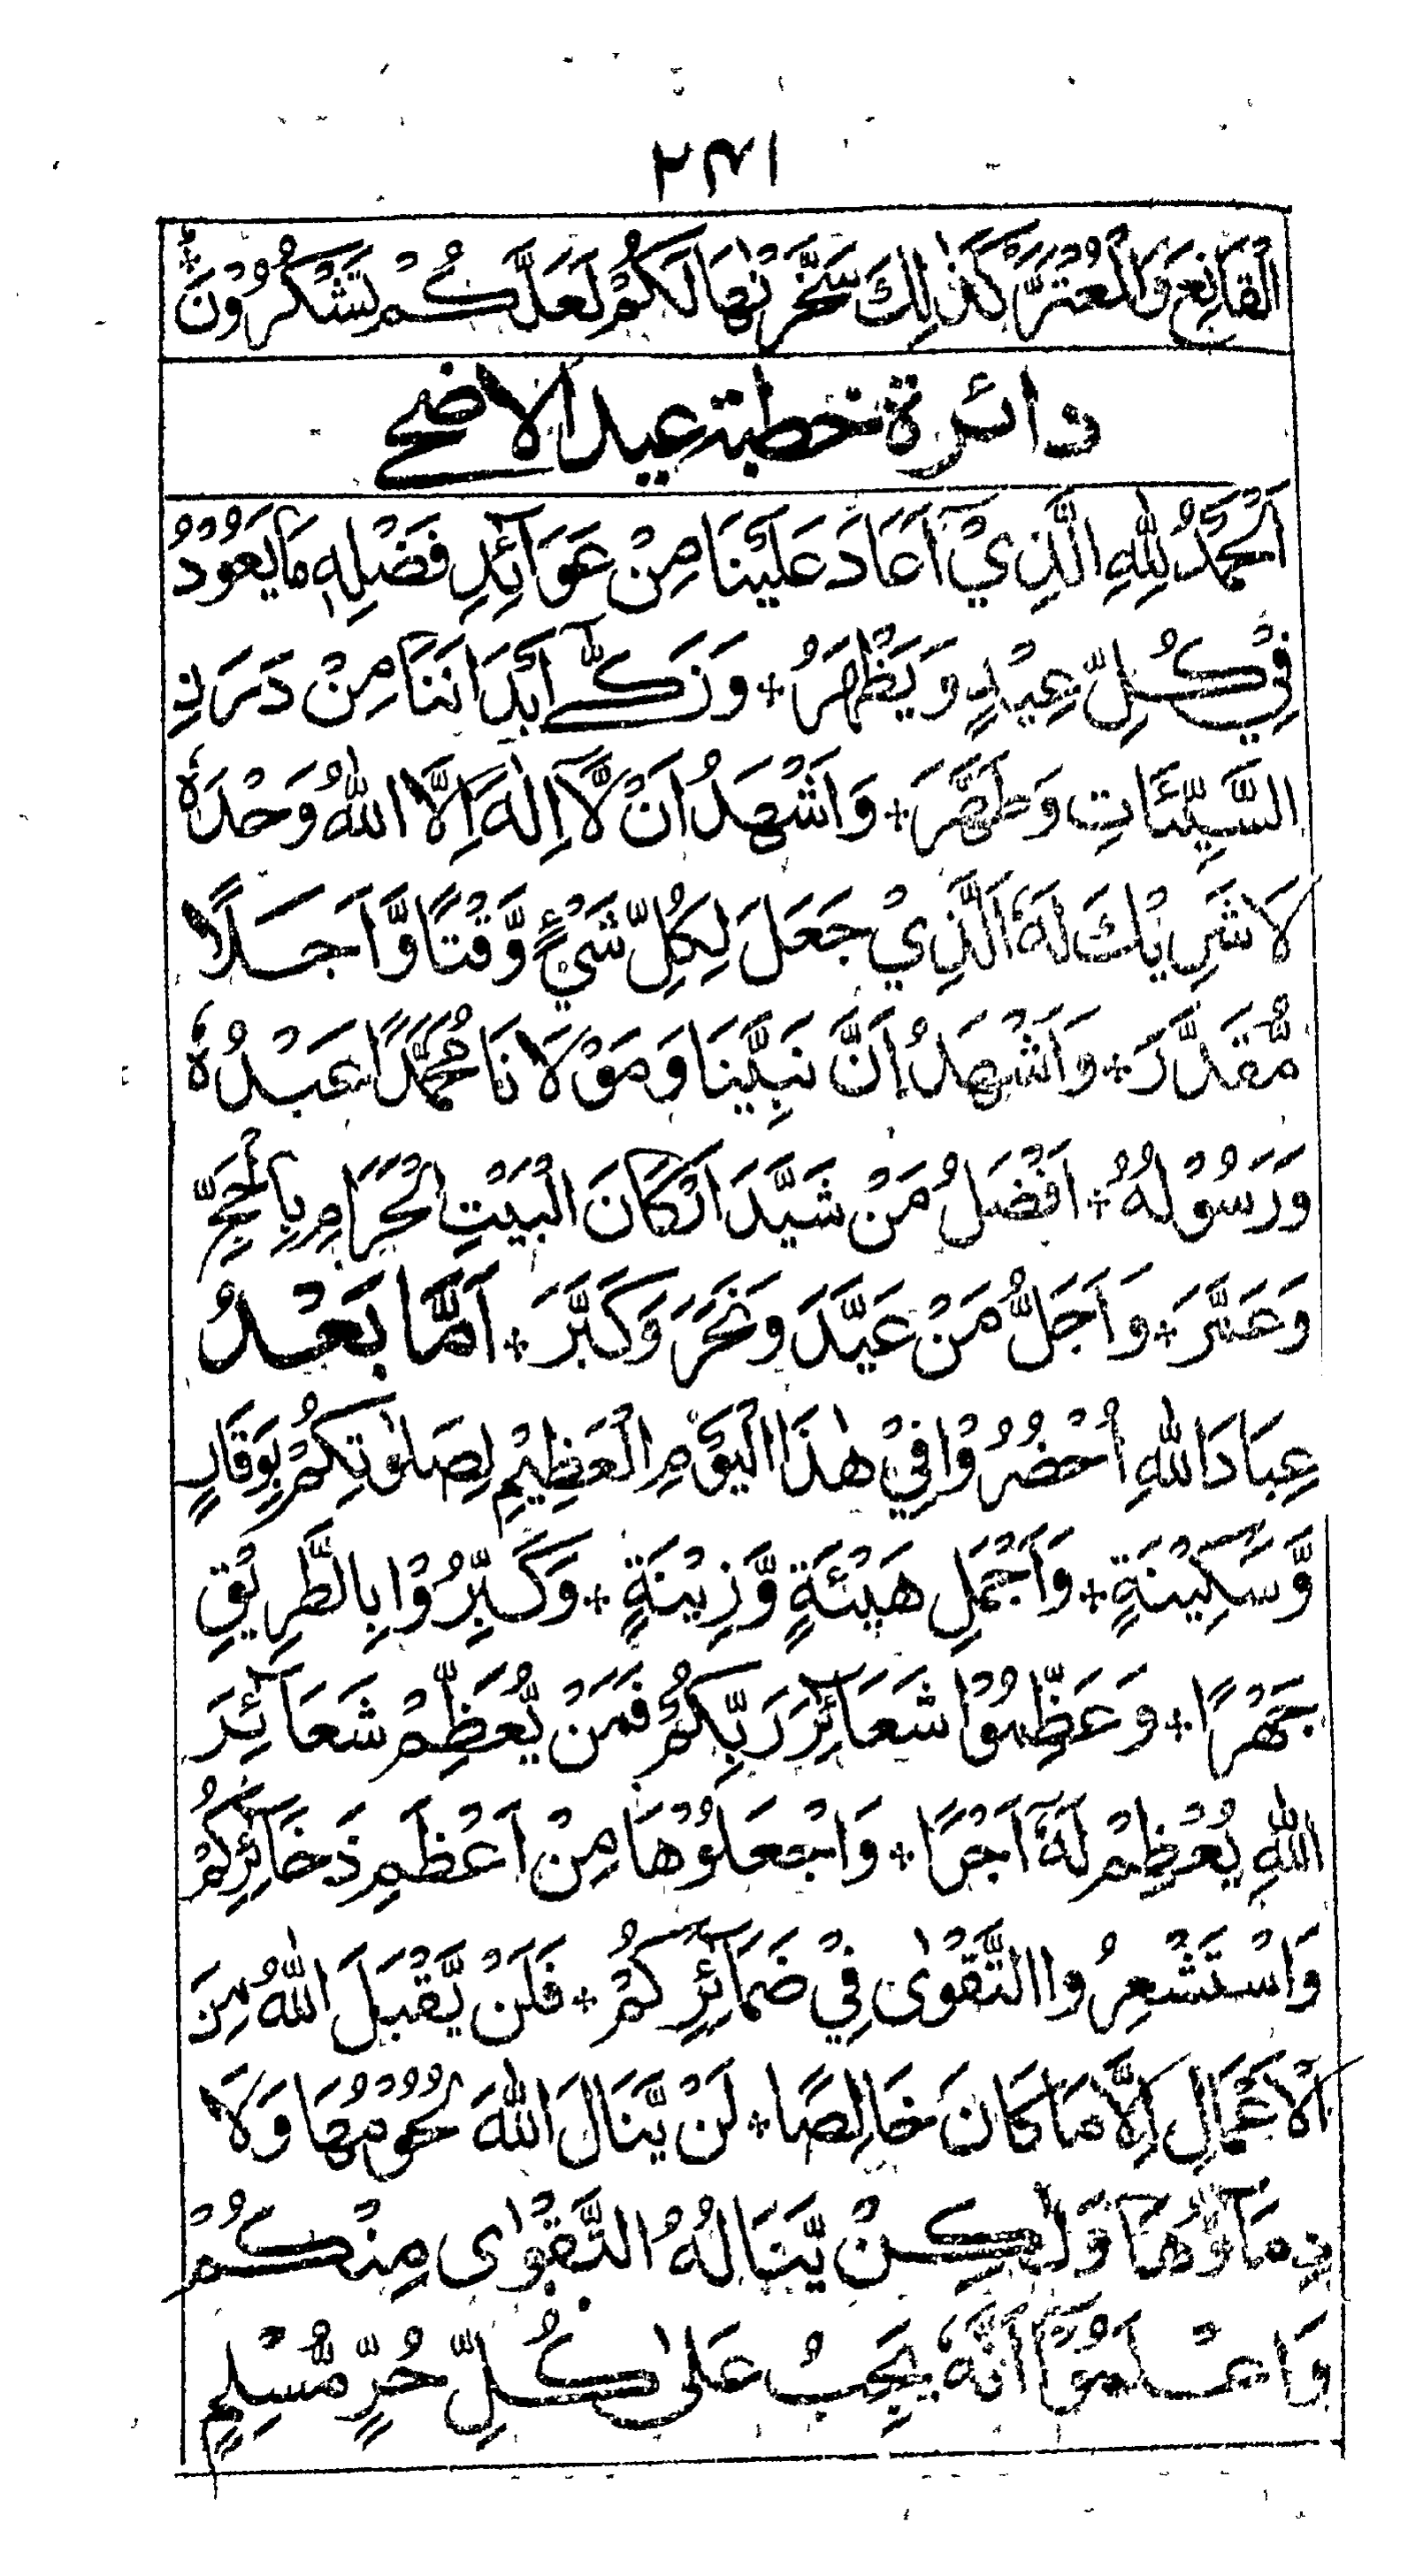 ٢٣١
الْقَانِعَ وَالْمُعْتَرَّ كَذٰلِكَ سَخَّرْنٰهَا لَكُمْ لَعَلَّكُمْ تَشْكُرُوْنَ
دائرة خطبة عيد الاضحى
اَلْحَمْدُ لِلّٰهِ الَّذِيْ اَعَادَ عَلَيْنَا مِنْ عَوَآئِدِ فَضْلِهٖ مَا يَعُوْدُ
فِيْ كُلِّ عِيْدٍ وَيَظْهَرُ + وَزَكّٰى اَبْدَانَنَا مِنْ دَرَنِ
السَّيِّئَاتِ وَطَهَّرَ + وَاَشْهَدُ اَنْ لَّآ اِلٰهَ اِلَّا اللّٰهُ وَحْدَهٗ
لَا شَرِيْكَ لَهٗ الَّذِيْ جَعَلَ لِكُلِّ شَيْءٍ وَّقْتًا وَّاَجَلًا
مُّقَدَّرَ + وَاَشْهَدُ اَنَّ نَبِيَّنَا وَمَوْلَانَا مُحَمَّدًا عَبْدُهٗ
وَرَسُوْلُهُ + اَفْضَلُ مَنْ شَيَّدَ اَرْكَانَ الْبَيْتِ الْحَرَامِ بِالْحَجِّ
وَعَمَّرَ + وَاَجَلُّ مَنْ عَيَّدَ وَنَحَرَ وَكَبَّرَ + اَمَّا بَعْدُ
عِبَادَ اللّٰهِ اُحْضُرُوْا فِيْ هٰذَا الْيَوْمِ الْعَظِيْمِ لِصَلٰوتِكُمْ بِوَقَارٍ
وَّسَكِيْنَةٍ + وَاَجْمَلِ هَيْئَةٍ وَّزِيْنَةٍ + وَكَبِّرُوْا بِالطَّرِيْقِ
جَهْرًا + وَعَظِّمُوْا شَعَآئِرَ رَبِّكُمْ فَمَنْ يُّعَظِّمْ شَعَآئِرَ
اللّٰهِ يُعْظِمْ لَهٗٓ اَجْرًا + وَاجْعَلُوْهَا مِنْ اَعْظَمِ ذَخَآئِرِكُمْ
وَاسْتَشْعِرُوا التَّقْوٰى فِيْ ضَمَآئِرِكُمْ + فَلَنْ يَّقْبَلَ اللّٰهُ مِنَ
الْاَعْمَالِ اِلَّا مَا كَانَ خَالِصًا + لَنْ يَّنَالَ اللّٰهَ لُحُوْمُهَا وَلَا
دِمَآؤُهَا وَلٰكِنْ يَّنَالُهُ التَّقْوٰى مِنْكُمْ
وَاعْلَمُوْٓا اَنَّهٗ يَجِبُ عَلٰى كُلِّ حُرٍّ مُّسْلِمٍ